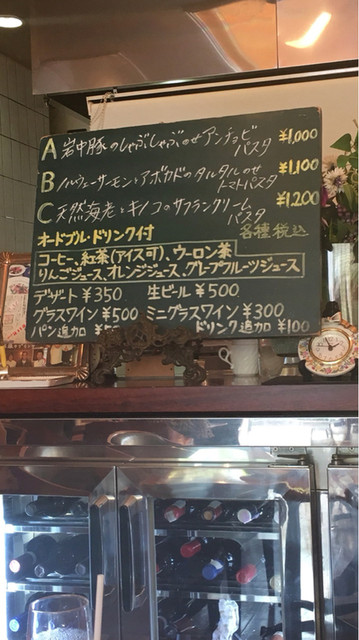 A 岩中豚のしゃぶしゃぶのせアンチョビパスタ ¥1,000
B ノルウェーサーモンとアボカドのタルタルのせトマトパスタ ¥1,100
C 天然海老とキノコのサフランクリームパスタ ¥1,200
オードブル・ドリンク付 各種税込
コーヒー、紅茶(アイス可)、ウーロン茶
りんごジュース、オレンジジュース、グレープフルーツジュース
デザート ¥350 生ビール ¥500
グラスワイン ¥500 ミニグラスワイン ¥300
パン追加 ドリンク追加 ¥100